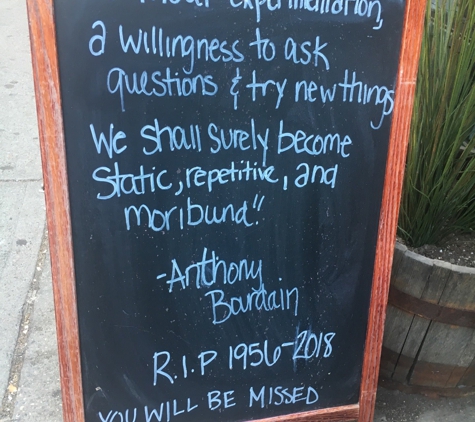 experimentation,
a willingness to ask
questions & try new things
We shall surely become
static, repetitive, and
moribund."
-Anthony
Bourdain
R.I.P 1956-2018
YOU WILL BE MISSED